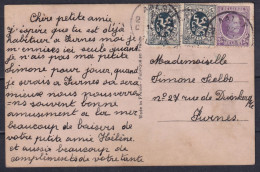 Chère petite amie
J'espère que tu est déjà
habituer a Furnes moi je
m'ennuies ici seule quand
je n'ais pas ma petite
Simone pour jouer, quand
je serais a Furnes
nous nous
vous souvent bonne
amusement a la mer
beaucoup de baisers de
votre petite amie Hélène.
et aussi beaucoup de
compliments de votre tante
Mademoiselle
Simone
n° 27 rue de Dunkerque
Furnes